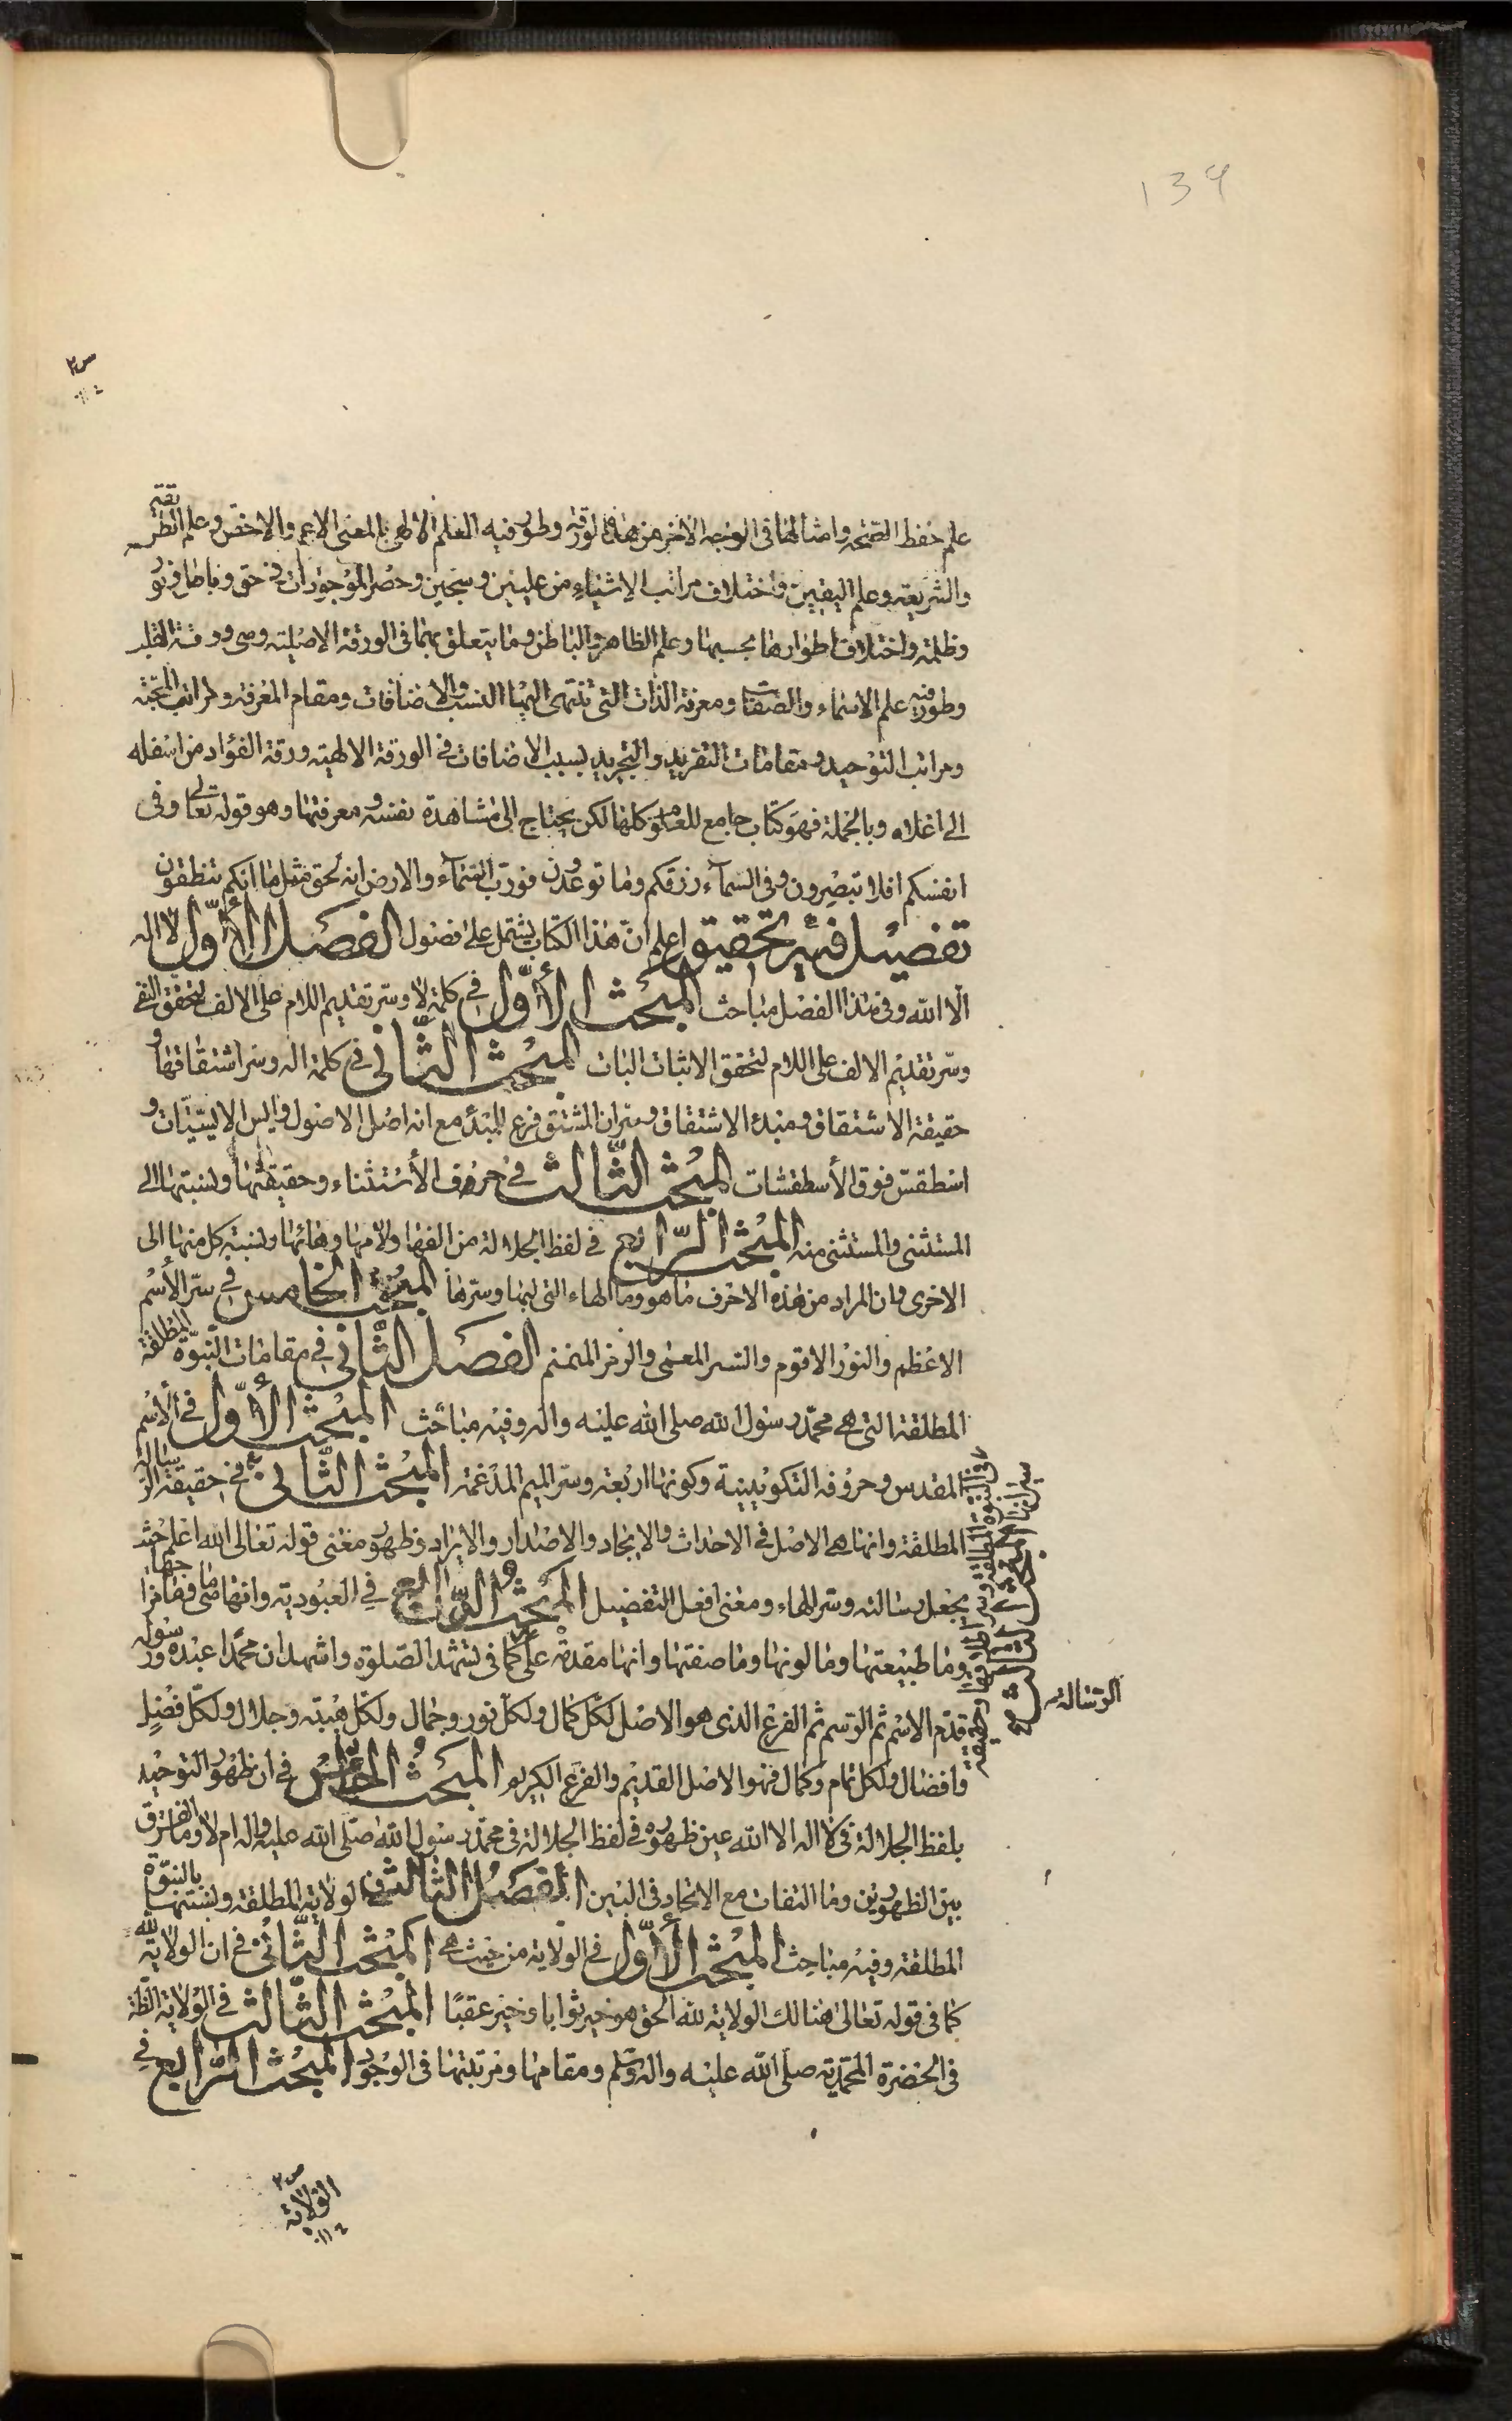 139
علم حفظ الصحة وامثالها فى الوجه الاخر من هذه الورقة وطور فيه العلم الالهى بالمعنى الاعم والاخص وعلم الطريقة
والشريعة وعلم اليقين واختلاف مراتب الاشياء من عليين وسجين وحصر الموجودات فى حق وباطل ونور
وظلمة واختلاف اطوارها بحسبها وعلم الظاهر والباطن وما يتعلق بهما فى الورقة الاصلية وهى ورقة القلب
وطور فيه علم الاسماء والصفات ومعرفة الذات التى تنتهى اليها النسب والاضافات ومقام المعرفة ومراتب المحبة
ومراتب التوحيد ومقامات التفريد والتجريد بسبب الاضافات فى الورقة الالهية ورقة الفؤاد من اسفله
الى اعلاه وبالجملة فهو كتاب جامع للعلوم كلها لكن يحتاج الى مشاهدة نفسه ومعرفتها وهو قوله تعالى وفى
انفسكم افلا تبصرون وفى السمآء رزقكم وما توعدون فورب السمآء والارض انه لحق مثل ما انكم تنطقون
تفصيل فيه تحقيق اعلم ان هذا الكتاب يشتمل على فصول الفصل الأول لا اله
الا الله وفى هذا الفصل مباحث المبحث الأول فى كلمة لا وسر تقديم اللام على الالف لتحقق النفى
وسر تقديم الالف على اللام لتحقق الاثبات البات المبحث الثانى فى كلمة اله وسر اشتقاقها و
حقيقة الاشتقاق ومبدء الاشتقاق وسر ان المشتق فرع المبدء مع انه اصل الاصول وايس الايسيات و
اسطقس فوق الأسطقسات المبحث الثالث فى حرف الأستثناء وحقيقتها ونسبتها الى
المستثنى والمستثنى منه المبحث الرابع فى لفظ الجلالة من الفها ولامها وهائها ونسبة كل منها الى
الاخرى وان المراد من هذه الاحرف ما هو وما الهاء التى لها وسرها المبحث الخامس فى سر الأسم
الاعظم والنور الاقوم والسر المعمى والرمز المنمنم الفصل الثانى فى مقامات النبوة المطلقة
المطلقة التى هى محمد رسول الله صلى الله عليه واله وفيه مباحث المبحث الأول فى الاسم
المقدس وحروفه التكوينية وكونها اربعة وسر الميم المدغمة المبحث الثانى فى حقيقة الرسالة
المطلقة وانها هى الاصل فى الاحداث والايجاد والاصدار والايراد وظهور معنى قوله تعالى الله اعلم حيث
يجعل رسالته وسر الهاء ومعنى افعل التفضيل المبحث الرابع فى العبودية وانها ما هى
وما طبيعتها وما لونها وما صفتها وانها مقدمة على كما فى تشهد الصلوة واشهد ان محمدا عبده ورسوله
قدم الاسم ثم الرسم ثم الفرع الذى هو الاصل لكل كمال ولكل نور وجمال ولكل هيبة وجلال ولكل فضل
وافضال ولكل تمام وكمال فهو الاصل القديم والفرع الكريم المبحث الخامس فى ان ظهور التوحيد
بلفظ الجلالة فى لا اله الا الله عين ظهوره فى لفظ الجلالة فى محمد رسول الله صلى الله عليه واله ام لا وما الفرق
بين الظهورين وما التفات مع الاتحاد فى البين الفصل الثالث فى الولاية المطلقة ونسبتها بالنبوة
المطلقة وفيه مباحث المبحث الأول فى الولاية من حيث هى المبحث الثانى فى ان الولاية لله
كما فى قوله تعالى هنالك الولاية لله الحق هو خير ثوابا وخير عقبا المبحث الثالث فى الولاية الظاهرة
فى الحضرة المحمدية صلى الله عليه واله وسلم ومقامها ومرتبتها فى الوجود المبحث الرابع فى
الرسالة
المبحث الثالث فى النبوة المطلقة
الولاية